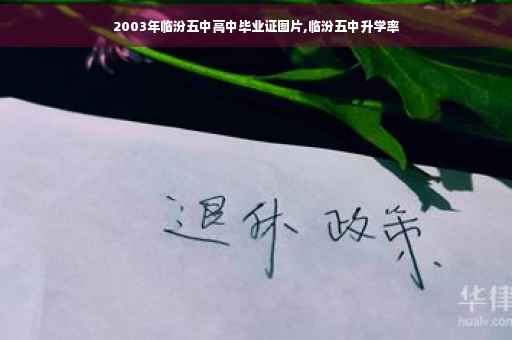 2003年临汾五中高中毕业证图片,临汾五中升学率
退休 政策
华律
hualv.com